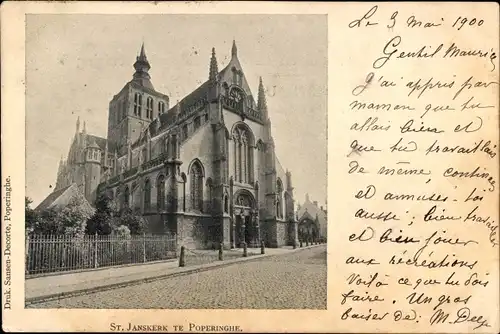 Le 3 Mai 1900
Gentil Maurice
J'ai appris par
maman que tu
allais bien et
que tu travaillais
de même, continue
et amuse-toi
aussi; bien travailler
et bien jouer
aux récréations
Voilà ce que tu dois
faire. Un gros
baiser de. M. Dely
ST. JANSKERK TE POPERINGHE.
Druk Sansen-Decorte, Poperinghe.